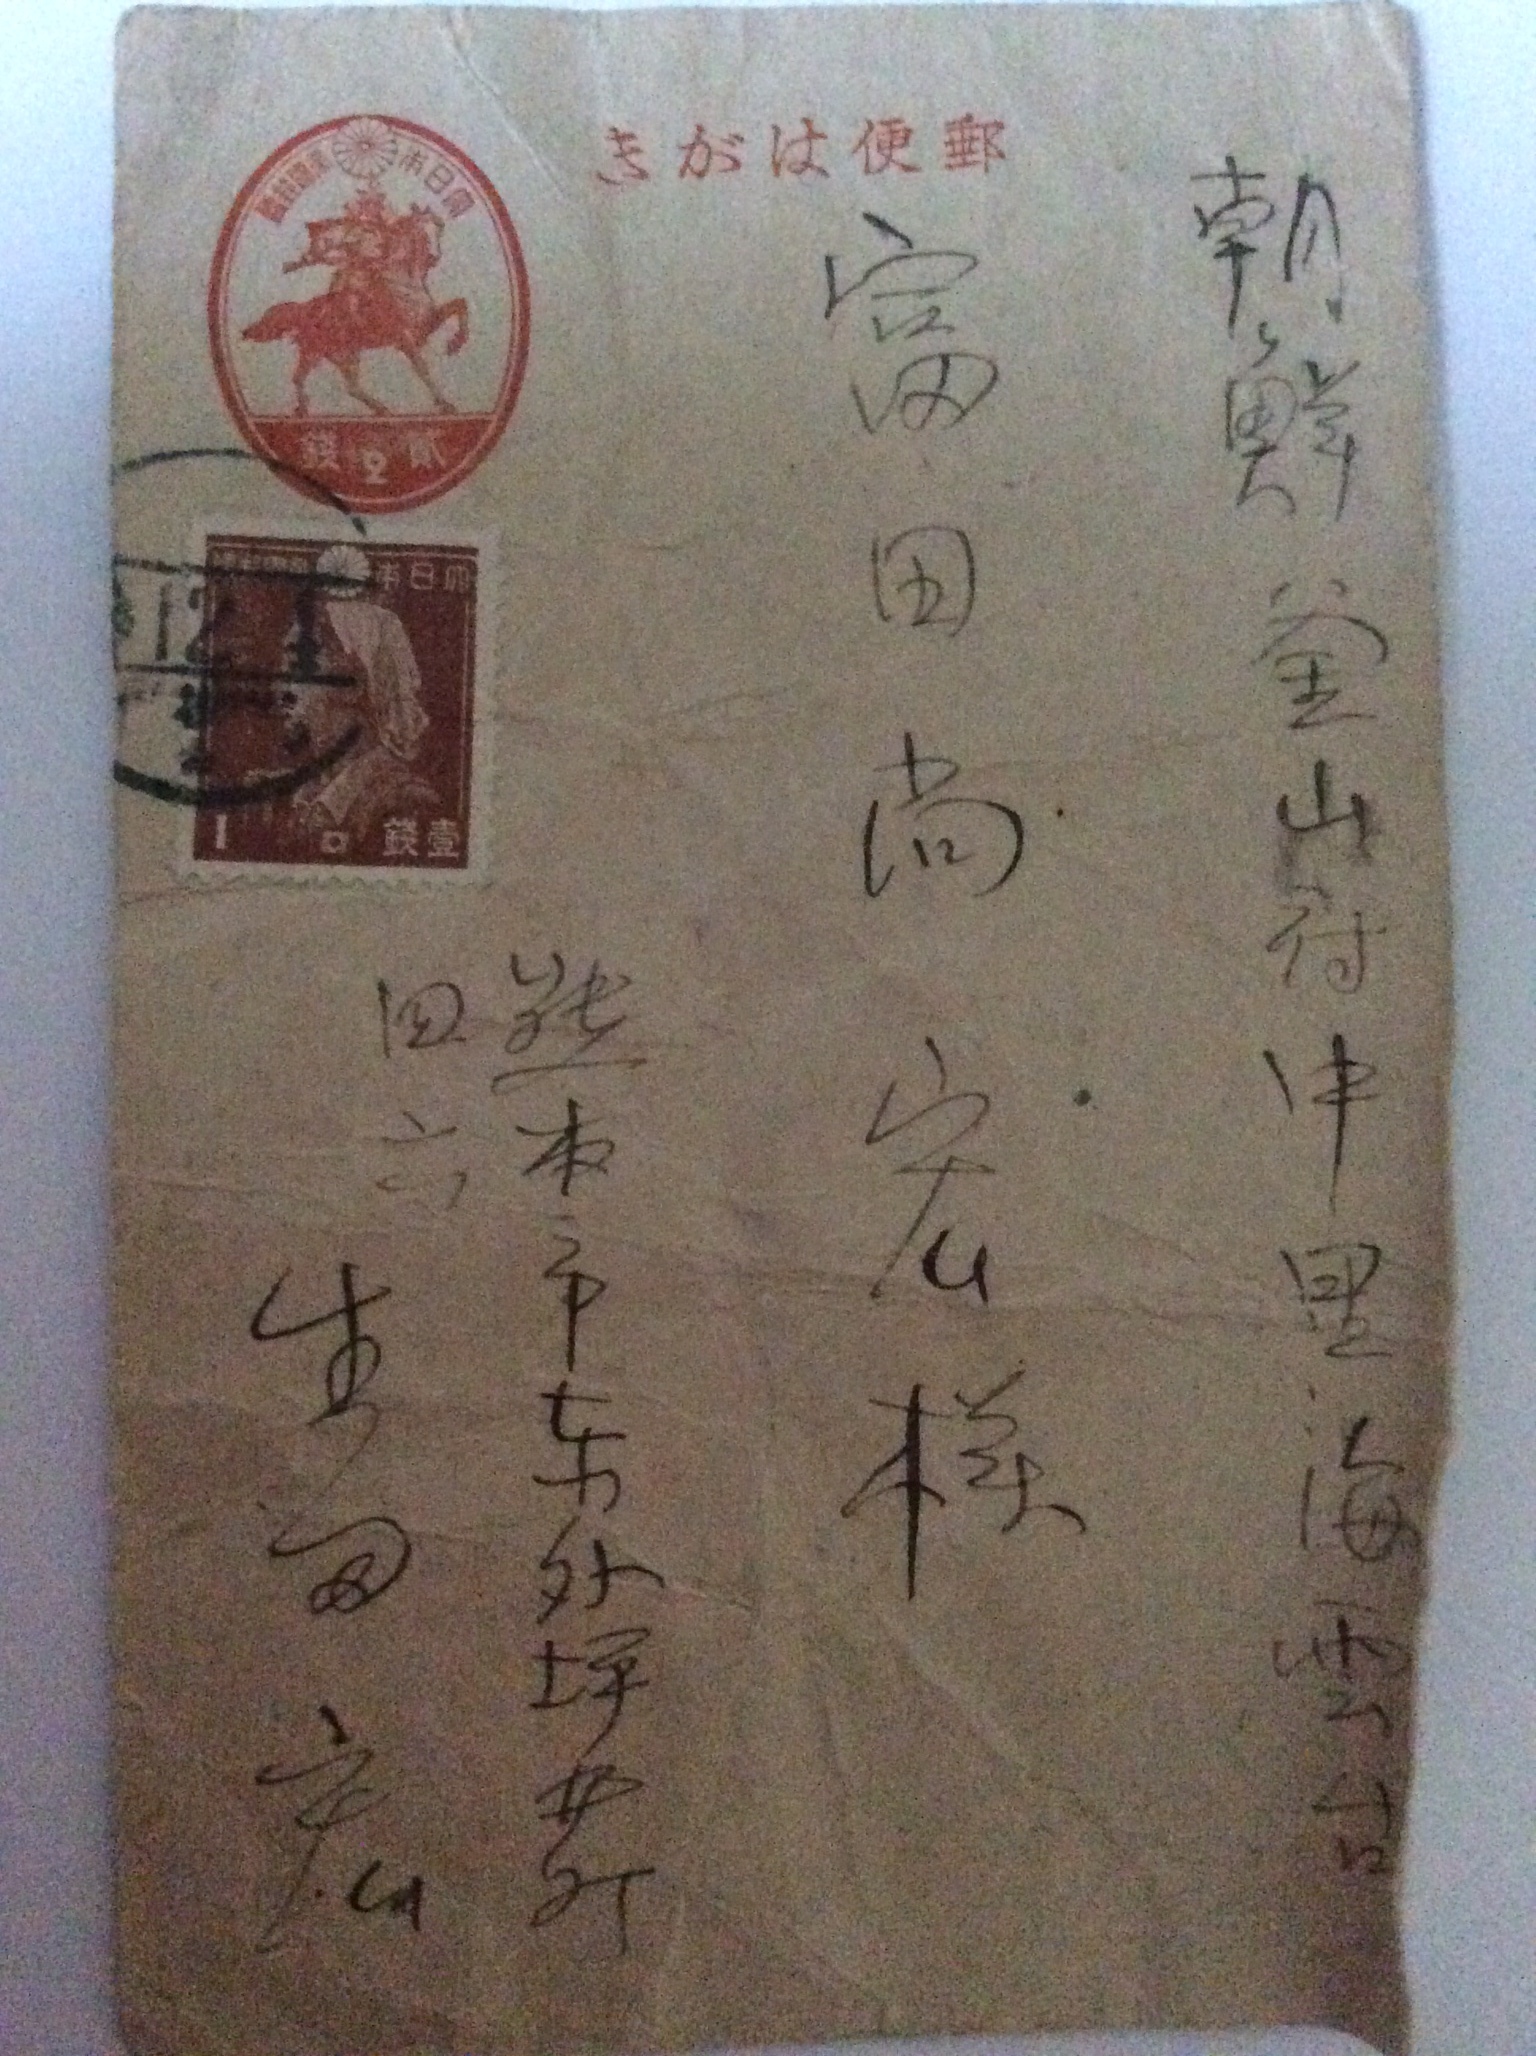 郵便はがき
大日本帝國郵便
貳錢
2
大日本帝國郵便
壹錢
1
12
朝鮮釜山府中里海雲台
富田尚宏様
熊本市東外坪井町
四六
生田宏